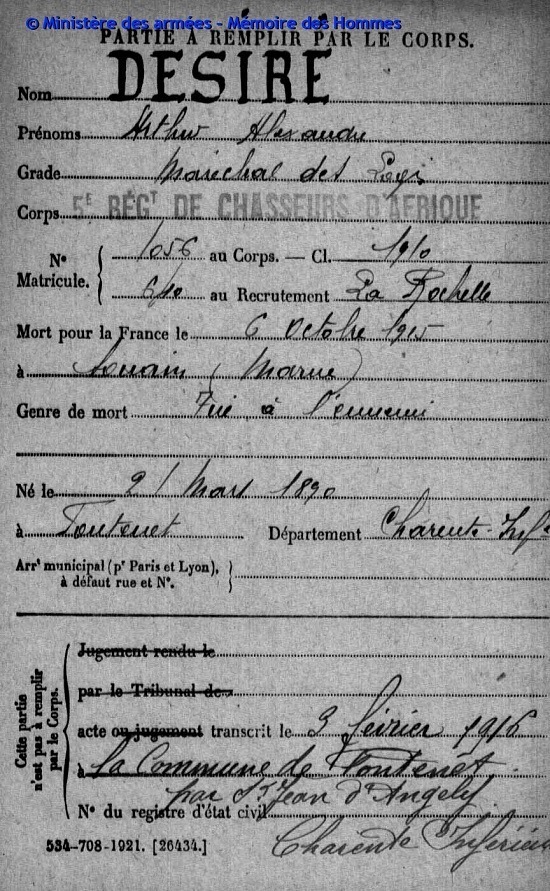 © Ministère des armées - Mémoire des Hommes
PARTIE À REMPLIR PAR LE CORPS.
Nom DÉSIRÉ
Prénoms Arthur Alexandre
Grade Maréchal des Logis
Corps 5E RÉGT DE CHASSEURS D'AFRIQUE
No Matricule. 1056 au Corps. — Cl. 1910
610 au Recrutement La Rochelle
Mort pour la France le 6 Octobre 1915
à (Marne)
Genre de mort Tué à l'ennemi
Né le 21 Mars 1890
à Fontenet Département Charente-Infre
Arrt municipal (pr Paris et Lyon), à défaut rue et No.
Cette partie n'est pas à remplir par le Corps.
Jugement rendu le
par le Tribunal de
acte ou jugement transcrit le 3 février 1916
à la Commune de Fontenet
par St Jean d'Angély
No du registre d'état civil
Charente Inférieure
534-708-1921. [26434.]